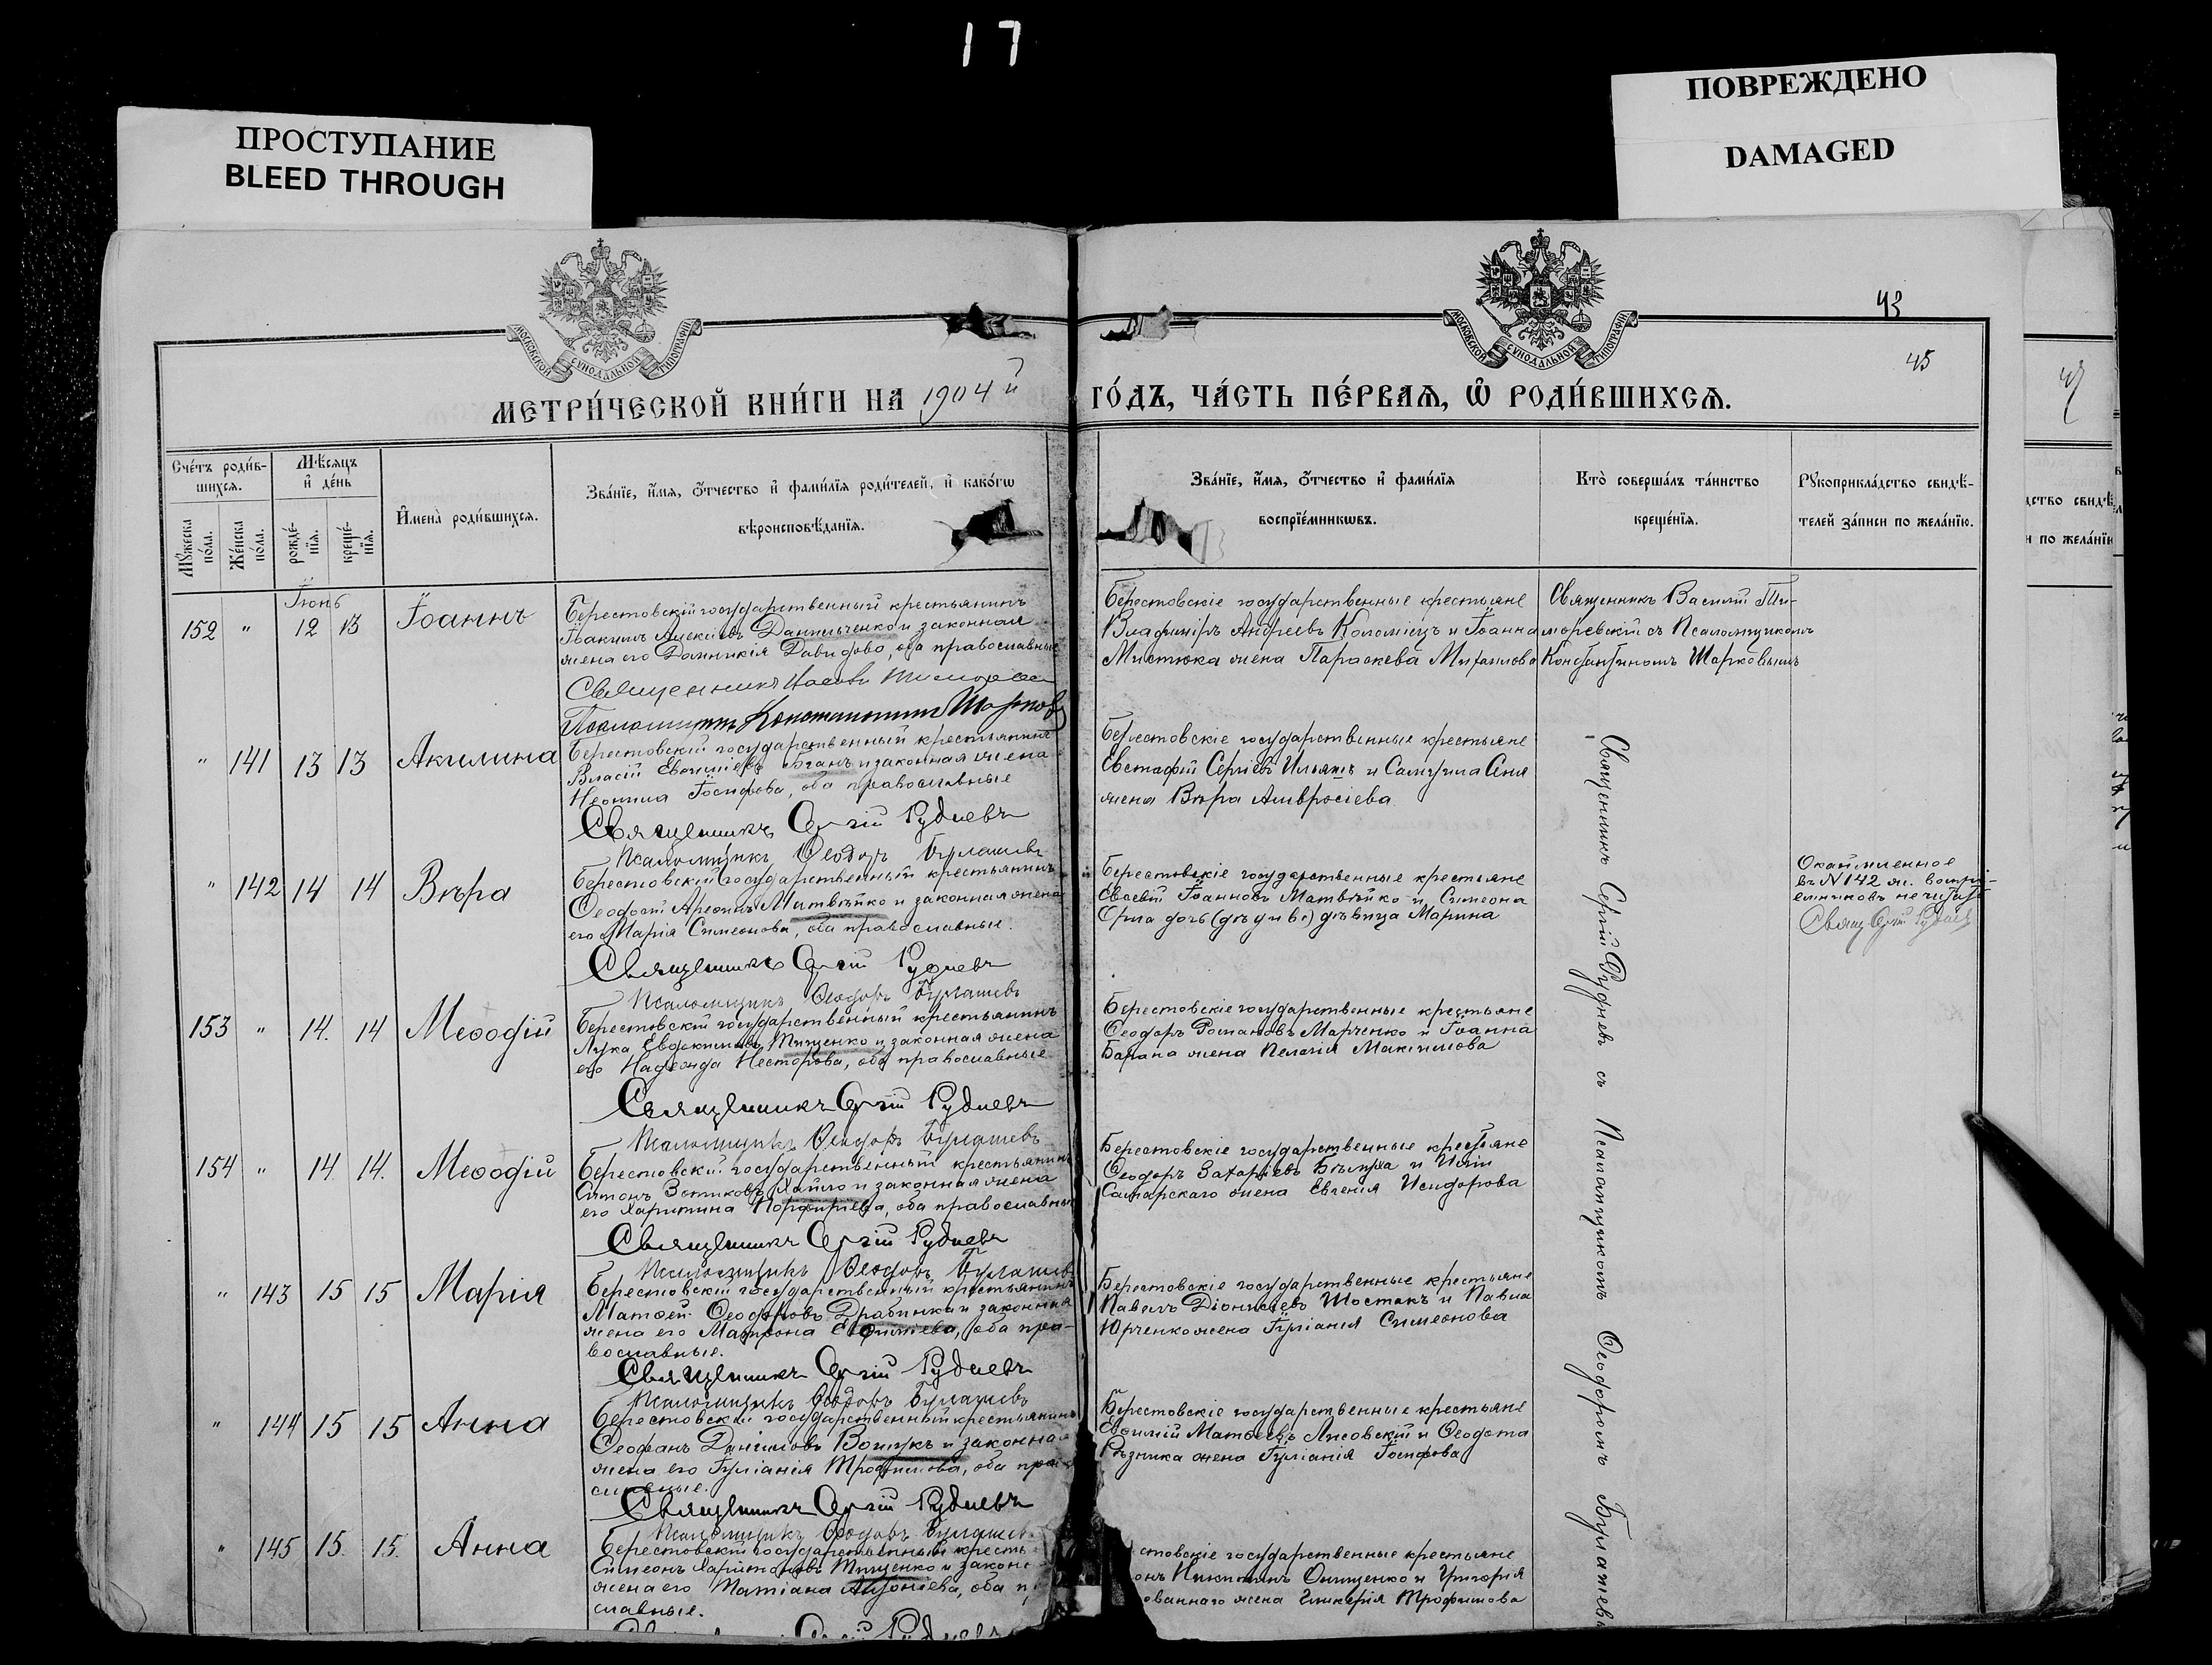 17
ПРОСТУПАНИЕ
BLEED THROUGH
ПОВРЕЖДЕНО
DAMAGED
МОСКОВСКОЙ СѴНОДАЛЬНОЙ ТИПОГРАФІИ
МОСКОВСКОЙ СѴНОДАЛЬНОЙ ТИПОГРАФІИ
43
45
47
МЕТРИ́ЧЕСКОЙ КНИ́ГИ НА 1904 й
ГО́ДЪ, ЧА́СТЬ ПЕ́РВАѦ, Ѽ РОДИ́ВШИХСѦ.
Сче́тъ роди́в-
шихсѧ.
Мѣ́сѧцъ
и҆ де́нь
Мꙋ́жеска
по́ла.
Же́нска
по́ла.
рожде́-
нїѧ.
креще́-
нїѧ.
И҆мена̀ роди́вшихсѧ.
Зва́нїе, и҆́мѧ, ѻ҆́тчество и҆ фами́лїѧ роди́телей, и҆ како́гѡ
вѣроисповѣ́данїѧ.
Зва́нїе, и҆́мѧ, ѻ҆́тчество и҆ фами́лїѧ
воспрїе́мникѡвъ.
Кто̀ соверша́лъ та́инство
креще́нїѧ.
Рꙋкоприкла́дство свидѣ́-
телей за́писи по жела́нїю.
Іюнь
152 " 12 13 Іоаннъ
Берестовскій государственный крестьянинъ
Іоакимъ Алексіевъ Данильченко и законная
жена его Домникія Давидова, оба православные
Священникъ Василій
Псаломщикъ Константинъ
Берестовскіе государственные крестьяне
Владиміръ Андреевъ Коломіецъ и Іоанна
Мистюка жена Параскева Михаилова
Священникъ Василій Ти-
моревскій съ Псаломщикомъ
Константиномъ
" 141 13 13 Акилина
Берестовскій государственный крестьянинъ
Власій Евфиміевъ и законная жена
Неонила Іосифова, оба православные
Священникъ Сергій Рудневъ
Псаломщикъ Ѳеодоръ Булашевъ
Берестовскіе государственные крестьяне
Евстафій Сергіевъ Ильяшъ и Самуила
жена Вѣра Амвросіева
Священникъ Сергій Рудневъ съ Псаломщикомъ Ѳеодоромъ Булашевымъ
" 142 14 14 Вѣра
Берестовскій государственный крестьянинъ
Ѳеодосій Матвѣйко и законная жена
его Марія Симеонова, оба православные.
Священникъ Сергій Рудневъ
Псаломщикъ Ѳеодоръ Булашевъ
Берестовскіе государственные крестьяне
Евсевій Іоанновъ Матвѣйко и Симеона
дочь дѣвица Марина
въ N 142
Свящ. Сергій Рудневъ
153 " 14. 14 Меѳодій
Берестовскій государственный крестьянинъ
Лука Евдокимовъ Тищенко и законная жена
его Надежда Несторова, оба православные
Священникъ Сергій Рудневъ
Псаломщикъ Ѳеодоръ Булашевъ
Берестовскіе государственные крестьяне
Ѳеодоръ Романовъ Марченко и Іоанна
Барана жена Пелагія Максимова
154 " 14 14. Меѳодій
Берестовскій государственный крестьянинъ
Зотиковъ и законная жена
его Харитина Порфиріева, оба православные
Священникъ Сергій Рудневъ
Псаломщикъ Ѳеодоръ Булашевъ
Берестовскіе государственные крестьяне
Ѳеодоръ Захаріевъ и Иліи
Самарскаго жена Евгенія Исидорова
" 143 15 15 Марія
Берестовскій государственный крестьянинъ
Матѳей Ѳеодоровъ Драбинка и законная
жена его Матрона Евфиміева, оба пра-
вославные.
Священникъ Сергій Рудневъ
Псаломщикъ Ѳеодоръ Булашевъ
Берестовскіе государственные крестьяне
Павелъ Діонисіевъ Шостакъ и Павла
Юрченко жена Іуліанія Симеонова
" 144 15 15 Анна
Берестовскій государственный крестьянинъ
Ѳеофанъ Даніиловъ и законная
жена его Іуліанія Трофимова, оба
славные.
Священникъ Сергій Рудневъ
Псаломщикъ Ѳеодоръ Булашевъ
Берестовскіе государственные крестьяне
Евфимій Матѳеевъ Лисовскій и Ѳеодота
Рѣзника жена Іуліанія Іосифова
" 145 15. 15. Анна
Берестовскій государственный
Симеонъ Харитоновъ Тищенко и
жена его Татіана, оба
славные.
Сергій Рудневъ
стовскіе государственные крестьяне
Никитинъ Онищенко и Григорія
ованнаго жена Гликерія Трофимова